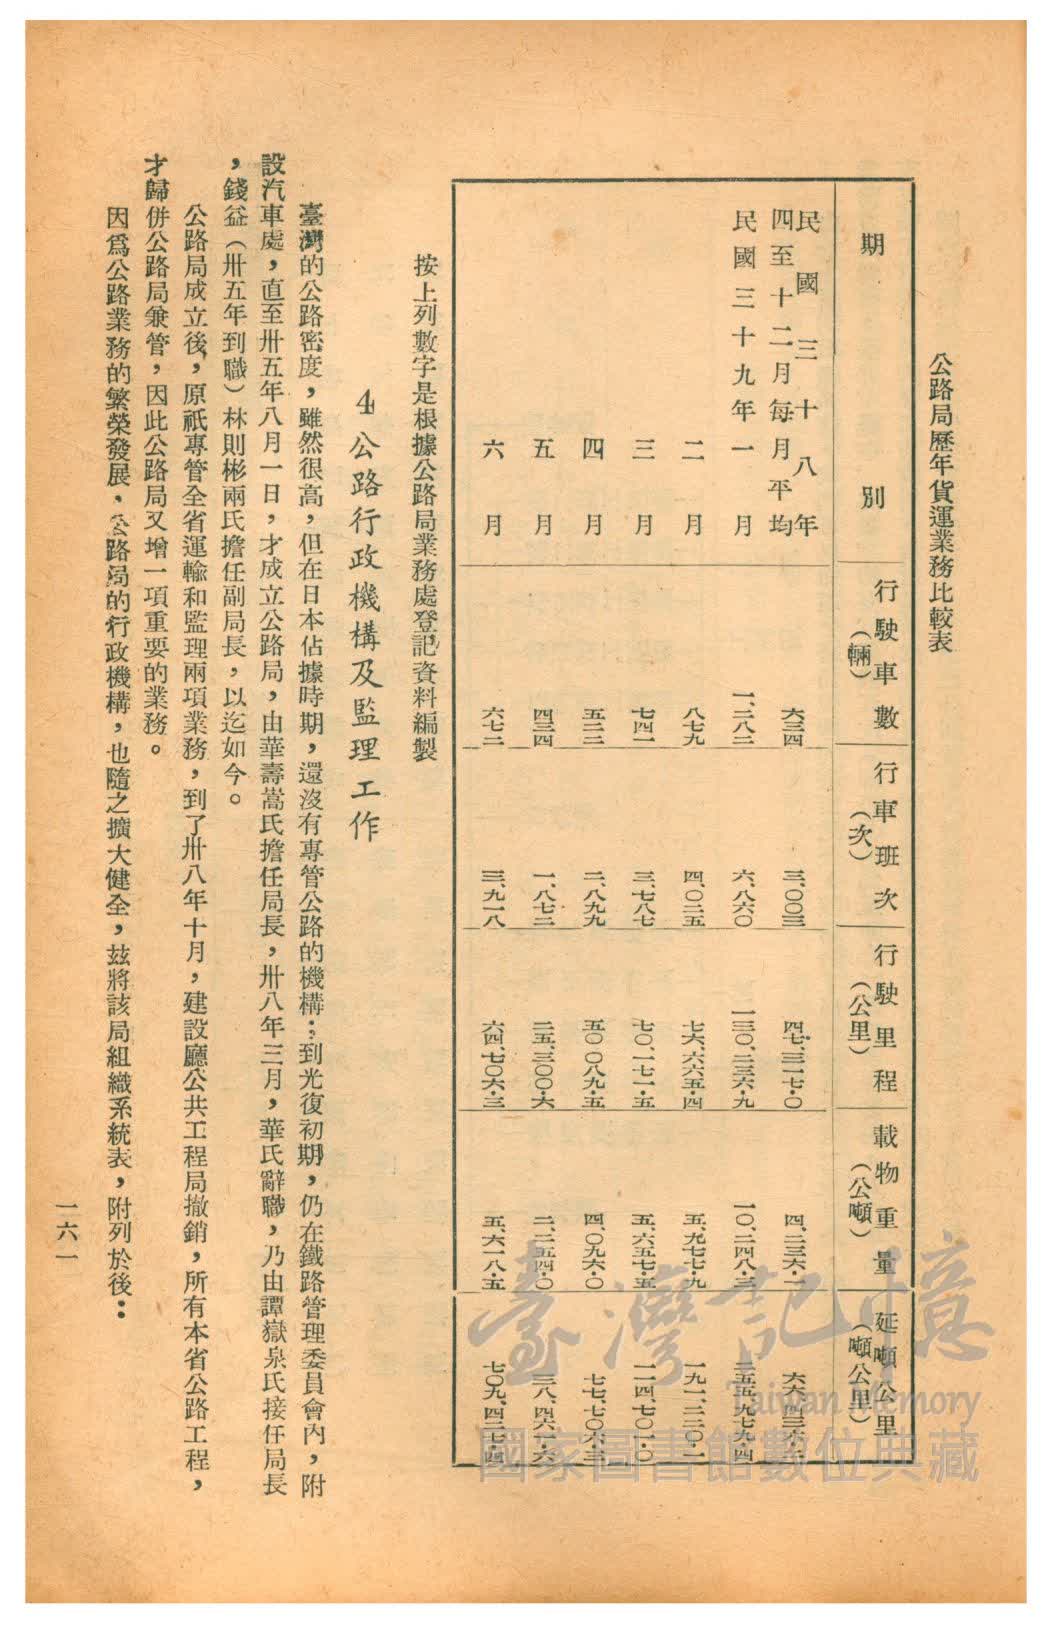 公路局歷年貨運業務比較表
期別
行駛車數（輛）
行車班次（次）
行駛里程（公里）
載物重量（公噸）
延噸公里（噸公里）
民國三十八年
四至十二月每月平均
六三四
三、〇〇三
四七、三一七・〇
四、二三六・一
民國三十九年一月
一、二八二
六、八六〇
一三〇、二三六・九
一〇、二四八・三
二月
八七九
四、〇二五
七六、六六五・四
五、九七七・九
一九一、二二〇・一
三月
七四一
三、七八七
七〇、一七一・五
五、六五七・五
一一四、七〇一・〇
四月
五二二
二、八九九
五〇、〇八九・五
四、〇九六・〇
七七、七〇六・三
五月
四三四
一、八七二
二五、三〇〇・六
二、二五四・〇
三八、四六一・六
六月
六七二
三、九一八
六四、七〇六・三
五、六一八・五
七〇九、四二七・四
按上列數字是根據公路局業務處登記資料編製
4 公路行政機構及監理工作
臺灣的公路密度，雖然很高，但在日本佔據時期，還沒有專管公路的機構；到光復初期，仍在鐵路管理委員會內，附
設汽車處，直至卅五年八月一日，才成立公路局，由華壽嵩氏擔任局長，卅八年三月，華氏辭職，乃由譚嶽泉氏接任局長
，錢益（卅五年到職）林則彬兩氏擔任副局長，以迄如今。
公路局成立後，原祇專管全省運輸和監理兩項業務，到了卅八年十月，建設廳公共工程局撤銷，所有本省公路工程，
才歸併公路局兼管，因此公路局又增一項重要的業務。
因爲公路業務的繁榮發展，公路局的行政機構，也隨之擴大健全，茲將該局組織系統表，附列於後：
一六一
臺灣記憶
Taiwan Memory
國家圖書館數位典藏